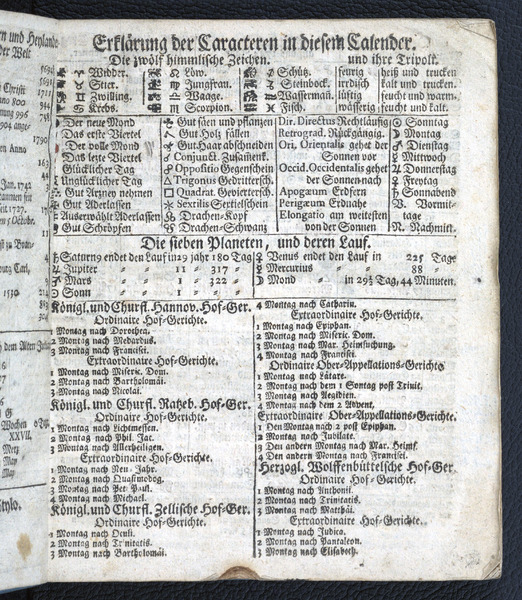 Erklärung der Caracteren in diesem Calender.
Die zwölf himmlische Zeichen. und ihre Tripolt.
♈ Widder. ♌ Löw. ♐ Schütz. feurig heiß und trucken
♉ Stier. ♍ Jungfrau. ♑ Steinbock. irdisch kalt und trucken.
♊ Zwilling. ♎ Waage. ♒ Wasserman. lüftig feucht und warm.
♋ Krebs. ♏ Scorpion. ♓ Fisch. wässerig feucht und kalt.
Der neue Mond Gut säen und pflantzen Dir. Directus Rechtläufig ☉ Sonntag
Das erste Viertel Gut Holz fällen Retrograd. Rückgängig. ☽ Montag
Der volle Mond Gut Haar abschneiden Ori. Orientalis gehet der ♂ Dienstag
Das letzte Viertel ☌ Conjunct. Zusamenk. Sonnen vor ☿ Mittwoch
Glücklicher Tag ☍ Oppositio Gegenschein Occid. Occidentalis gehet ♃ Donnerstag
Unglücklicher Tag △ Trigonus Gedrittersch. der Sonnen nach ♀ Freytag
Gut Artzney nehmen □ Quadrat. Gevierterscch. Apogæum Erdfern ♄ Sonnabend
Gut Aderlassen ⚹ Sextilis Sextilschein Perigæum Erdnahe V. Vormit-
Auserwählt Aderlassen ☊ Drachen-Kopf Elongatio am weitesten tage
Gut Schröpfen ☋ Drachen-Schwanz von der Sonnen N. Nachmitt.
Die sieben Planeten, und deren Lauf.
♄ Saturnq endet den Lauf in 29 jahr 180 Tag ♀ Venus endet den Lauf in 225 Tage
♃ Jupiter " " 11 " 317 " ☿ Mercurius " " 88 "
♂ Mars " " 1 " 322 " ☽ Mond " in 29½ Tag, 44 Minuten.
☉ Sonn " " 1 " "
Königl. und Churfl. Hannov. Hof-Ger.
Ordinaire Hof-Gerichte.
1 Montag nach Dorothea.
2 Montag nach Medardus.
3 Montag nach Francisci.
Extraordinaire Hof-Gerichte.
1 Montag nach Miseric. Dom.
2 Montag nach Bartholomäi.
3 Montag nach Nicolai.
Königl. und Churfl. Ratzeb. Hof-Ger.
Ordinaire Hof-Gerichte.
1 Montag nach Lichtmessen.
2 Montag nach Phil. Jac.
3 Montag nach Allerheiligen.
Extraordinaire Hof-Gerichte.
1 Montag nach Neu-Jahr.
2 Montag nach Quasimodog.
3 Montag nach Pet. Paul.
4 Montag nach Michael.
Königl. und Churfl. Zellische Hof-Ger.
Ordinaire Hof-Gerichte.
1 Montag nach Oculi.
2 Montag nach Trinitatis.
3 Montag nach Bartholomäi.
4 Montag nach Catharin.
Extraordinaire Hof-Gerichte.
1 Montag nach Epiphan.
2 Montag nach Miseric. Dom.
3 Montag nach Mar. Heimsuchung.
4 Montag nach Francisci.
Ordinaire Ober-Appellations-Gerichte
1 Montag nach Lätare.
2 Montag nach dem 1 Sontag post Trinit.
3 Montag nach Aegidien.
4 Montag nach dem 2 Advent.
Extraordinaire Ober-Appellations-Gerichte.
1 Den Montag nach 2 post Epiphan.
2 Montag nach Jubilate.
3 Den andern Montag nach Mar. Heims.
4 Den andern Montag nach Francisci.
Herzogl. Wolffenbüttelsche Hof-Ger.
Ordinaire Hof-Gerichte.
1 Montag nach Anthonii.
2 Montag nach Trinitatis.
3 Montag nach Matthäi.
Extraordinaire Hof-Gerichte.
1 Montag nach Judica.
2 Montag nach Pantaleon.
3 Montag nach Elisabeth.